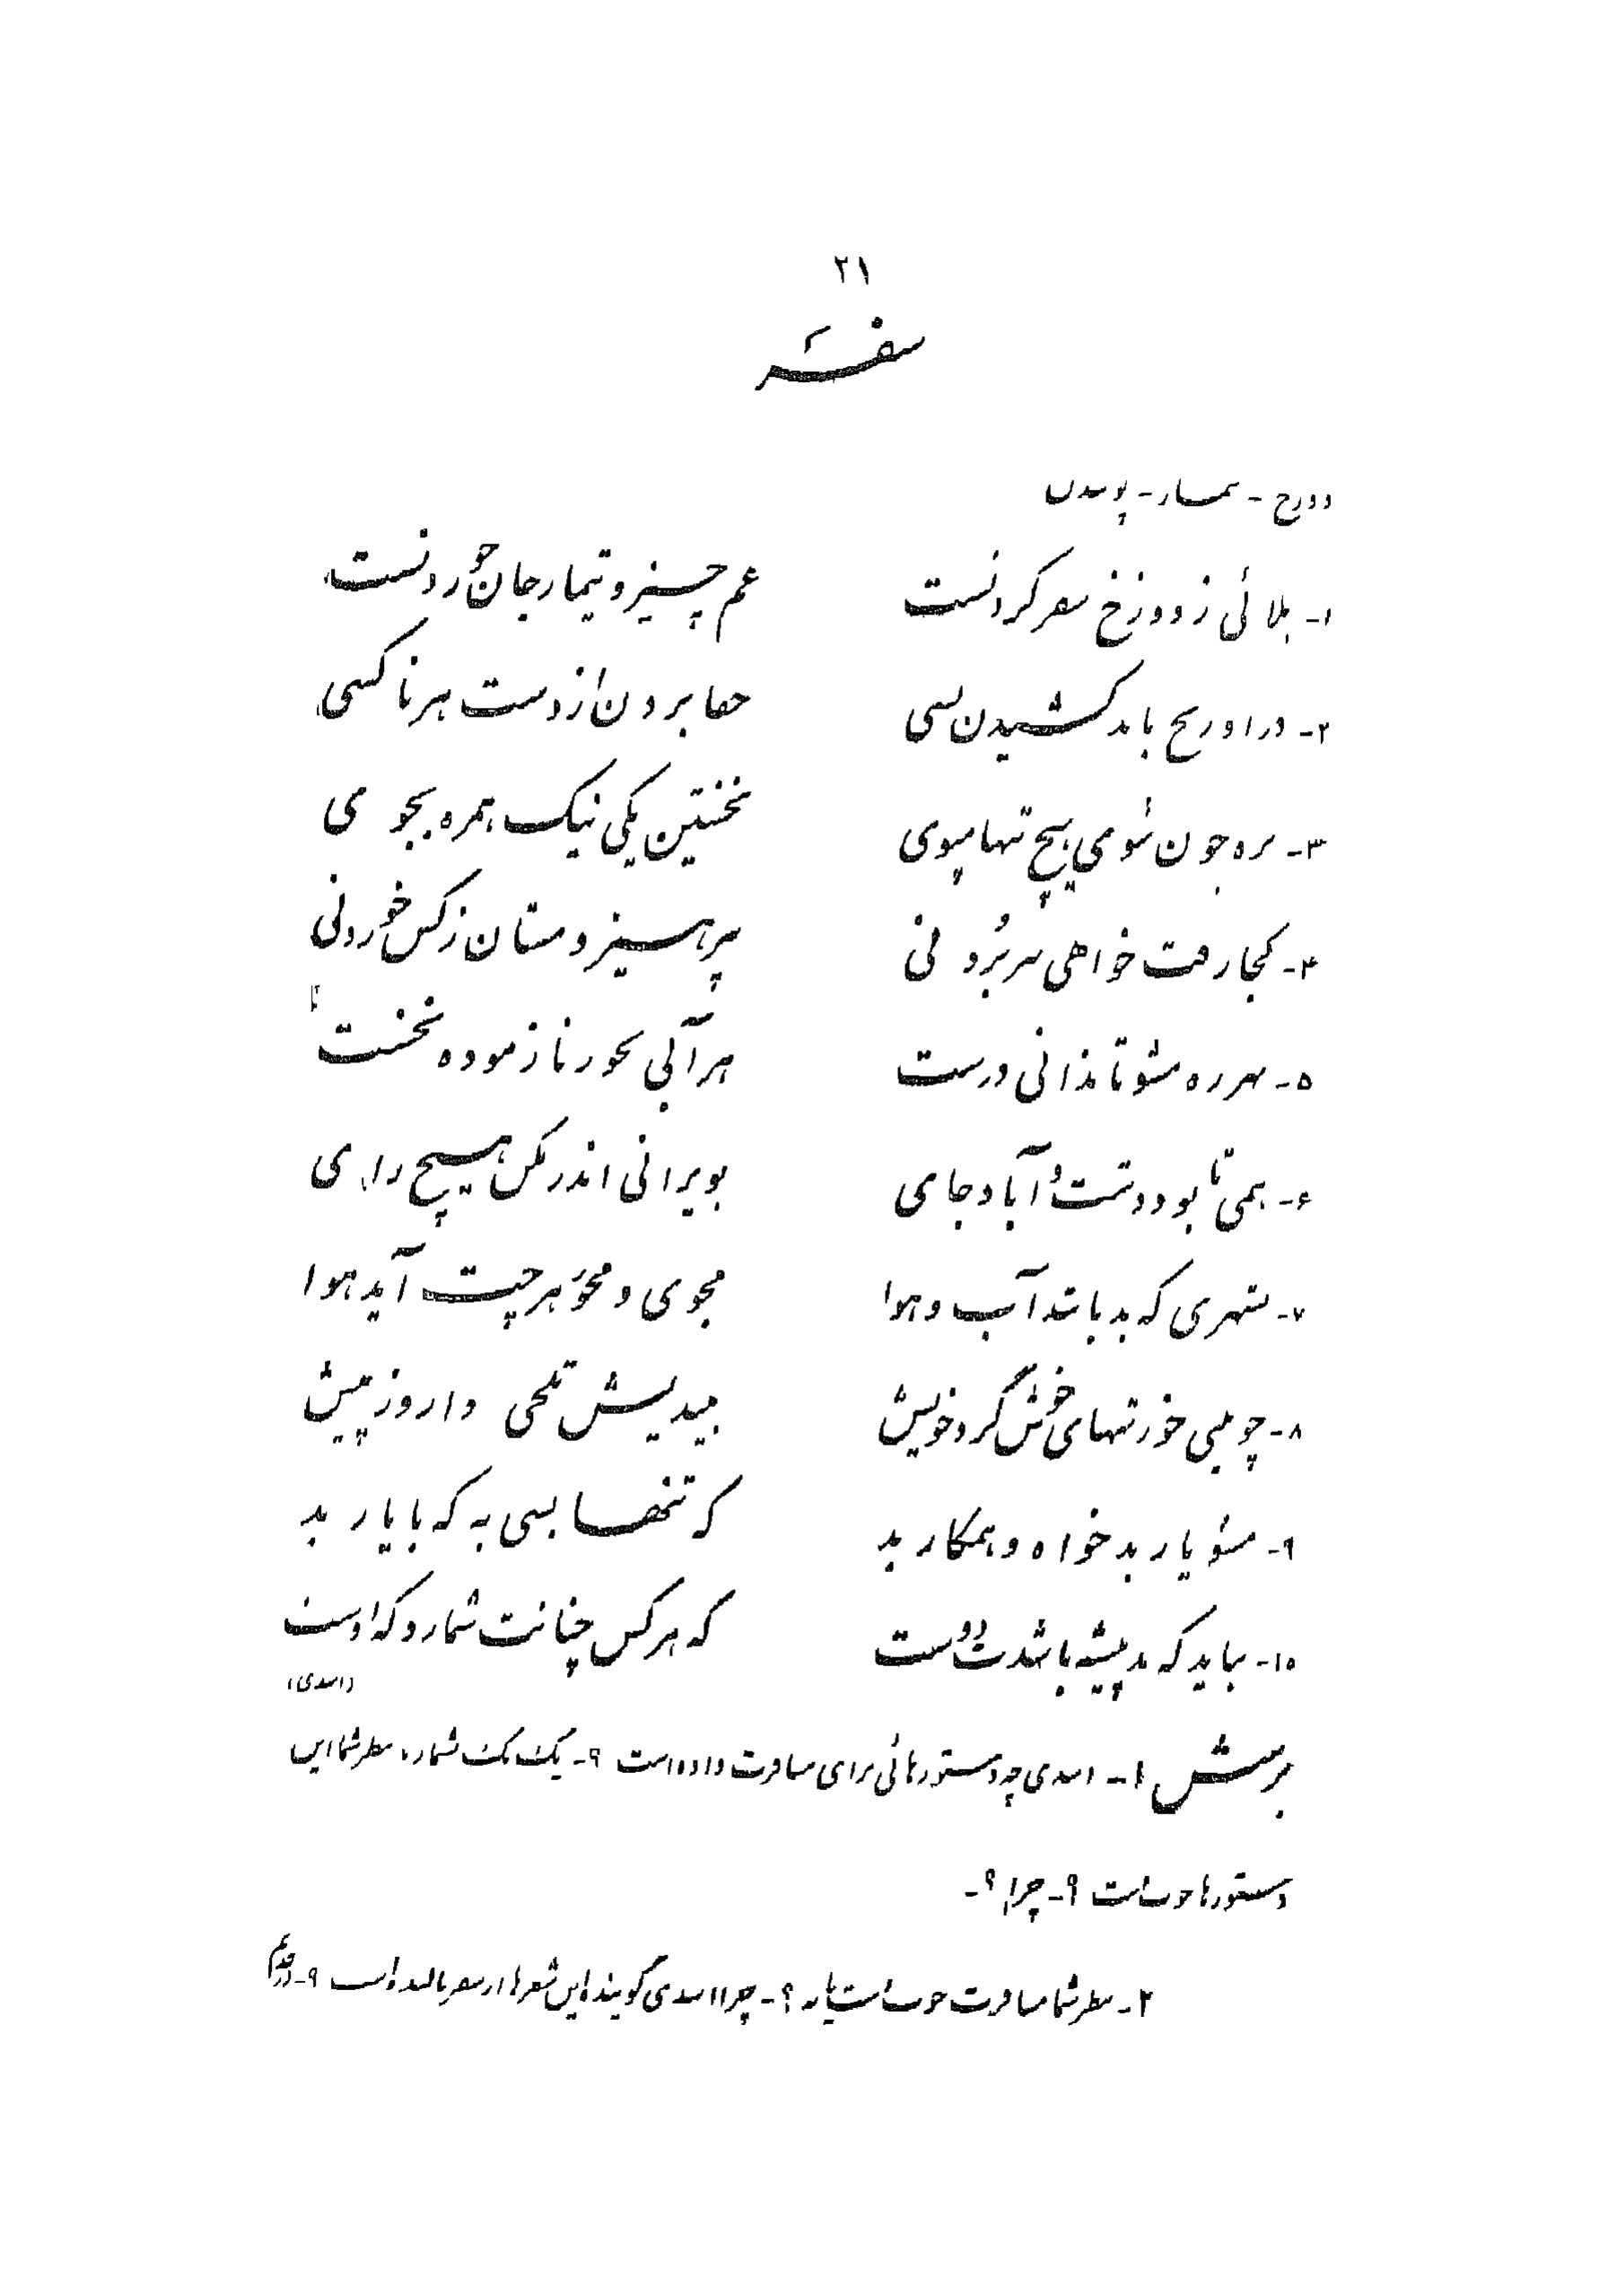 ۲۱
سفر
دوزخ - تیمار - پوییدن
۱- بلائی ز دوزخ سفر کردنست غم چیز و تیمار جان خوردنست
۲- در او رنج باید کشیدن بسی جفا بردن از دست هر ناکسی
۳- بره چون شوی هیچ تنها مپوی نخستین یکی نیک همره بجوی
۴- کجا رفت خواهی ببر بردنی بپرهیز و مستان ز کس خوردنی
۵- بهر ره مشو تا ندانی درست هر آبی مخور نازموده نخست
۶- همی تا بود دشت و آباد جای بویرانی اندر مکن هیچ رای
۷- بشهری که بد باشد آب و هوا مجوی و مخور هرچت آید هوا
۸- چو بینی خورشهای خوش گرد خویش بیندیش تلخی دارو ز پیش
۹- مشو یار بدخواه و همکار بد که تنها بسی به که با یار بد
۱۰- نباید که بد پیشه باشدت دوست که هر کس چنانت شمارد که اوست
(اسدی)
پرسش ۱- اسدی چه دستورهائی برای مسافرت داده است ؟- یک یک بشمارد، بنظر شما این
دستورها خوبست ؟- چرا ؟-
۲- بنظر شما مسافرت خوبست یا نه ؟- چرا اسدی گویندهٔ این شعرها از سفر نالیده است ؟- در قدیم